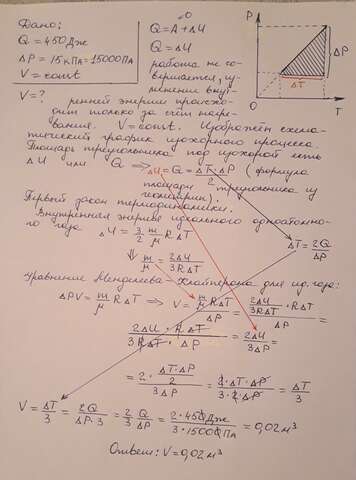 Дано:
Q = 450 Дж
ΔP = 15 кПа = 15000 Па
V = const
V = ?
→0
Q = A + ΔU
Q = ΔU
работа не со-
вершается, из-
менение внут-
ренней энергии происхо-
дит только за счёт нагре-
вания. V = const. Изображён схема-
тический график изохорного процесса.
Площадь треугольника под изохорой есть
ΔU или Q ⇒ ΔU = Q = ΔT·ΔP / 2 (формула
площади треугольника из
геометрии).
Первый закон термодинамики.
Внутренняя энергия идеального одноатомно-
го газа ΔU = 3/2 m/μ RΔT
ΔT = 2Q/ΔP
⇓ m/μ = 2ΔU / 3RΔT
Уравнение Менделеева-Клайперона для ид. газа:
ΔPV = m/μ RΔT ⇒ V = m/μ RΔT / ΔP = 2ΔU/3RΔT · RΔT / ΔP =
2ΔU · RΔT / 3RΔT · ΔP = 2ΔU / 3ΔP =
= 2 · ΔT·ΔP/2 / 3ΔP = 2·ΔT·ΔP / 3·2·ΔP = ΔT/3
V = ΔT/3 = 2Q / ΔP·3 = 2/3 Q/ΔP = 2·450 Дж / 3·15000 Па = 0,02 м³
Ответ: V = 0,02 м³
P
ΔP
ΔT
O
T